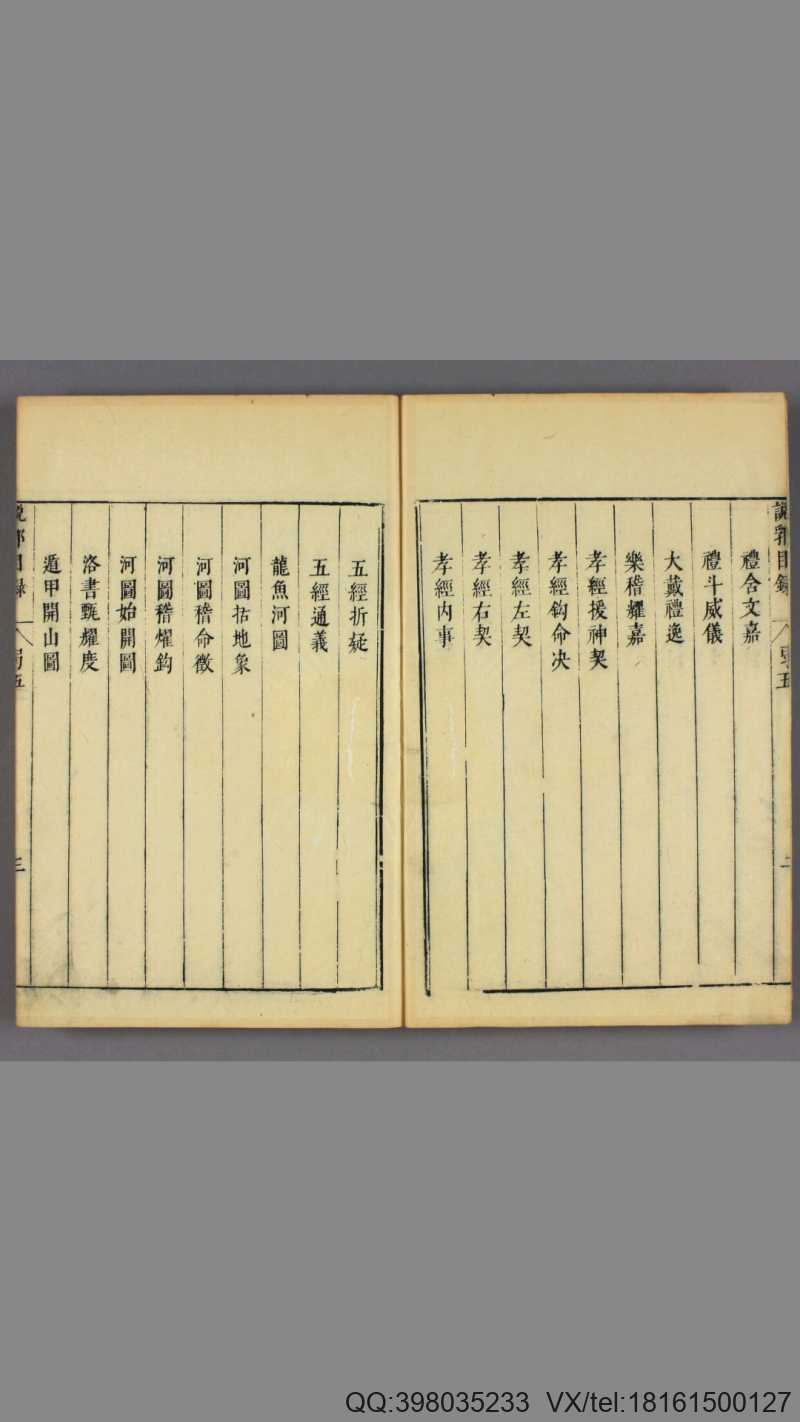 說郛目錄 弓五 二
禮含文嘉
禮斗威儀
大戴禮逸
樂稽耀嘉
孝經援神契
孝經鈎命决
孝經左契
孝經右契
孝經内事
五經折疑
五經通義
龍魚河圖
河圖括地象
河圖稽命徵
河圖稽燿鈎
河圖始開圖
洛書甄燿度
遁甲開山圖
說郛目錄 弓五 三
QQ:398035233 VX/tel:18161500127